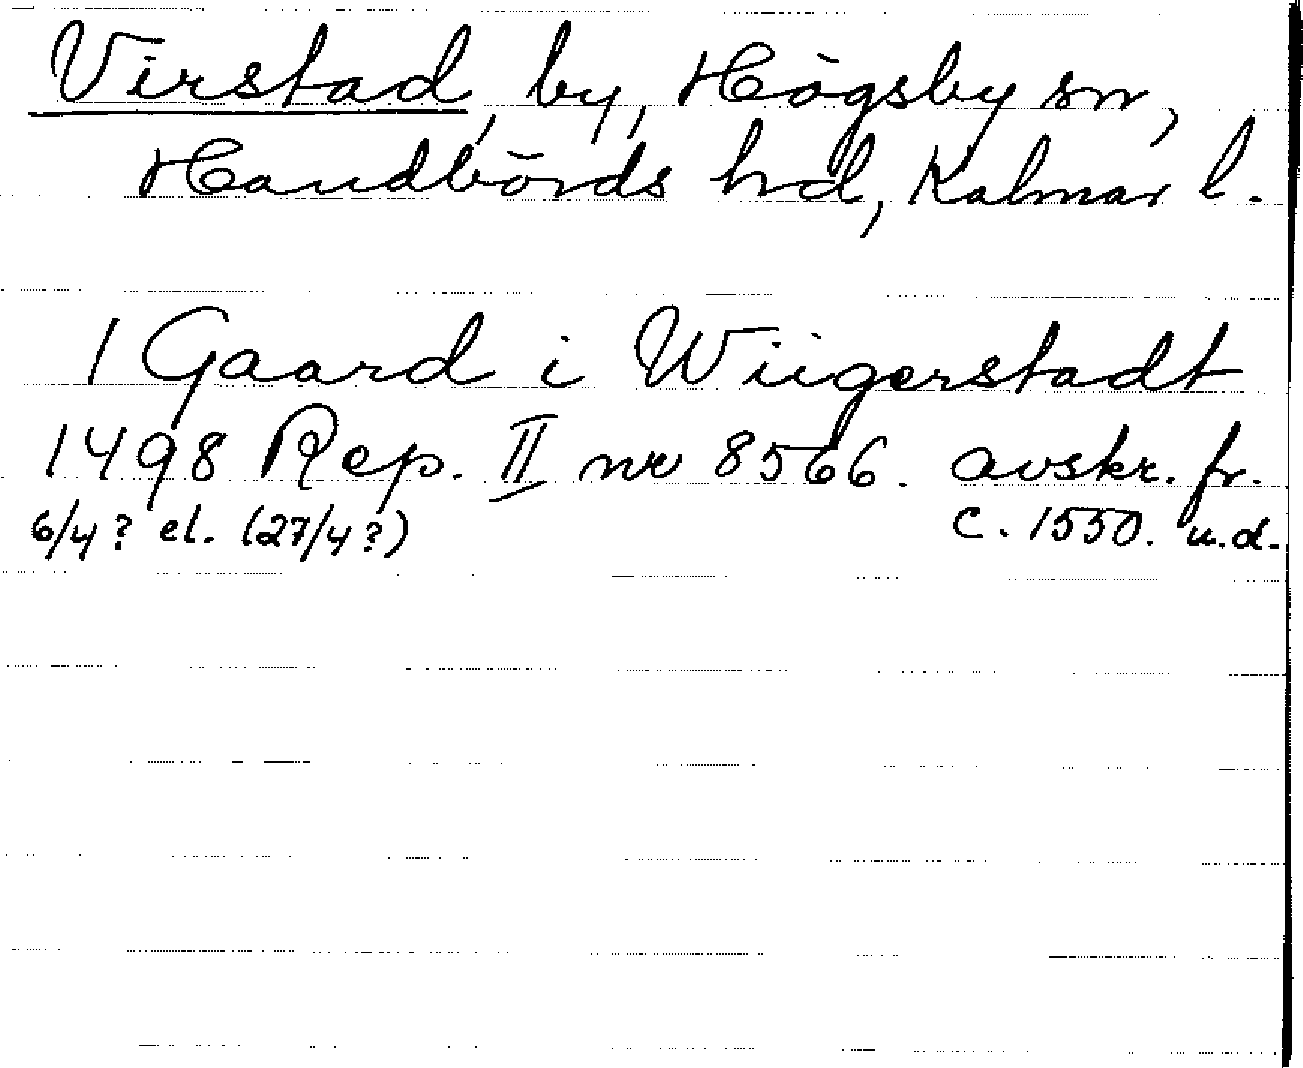 Virstad, by, Högsby sn,
Handbörds hd, Kalmar l.
1 Gaard i Wiigerstadt
1498 Rep. II nr 8566. avskr. fr.
6/4? el. (27/4?) c. 1550. u.d.